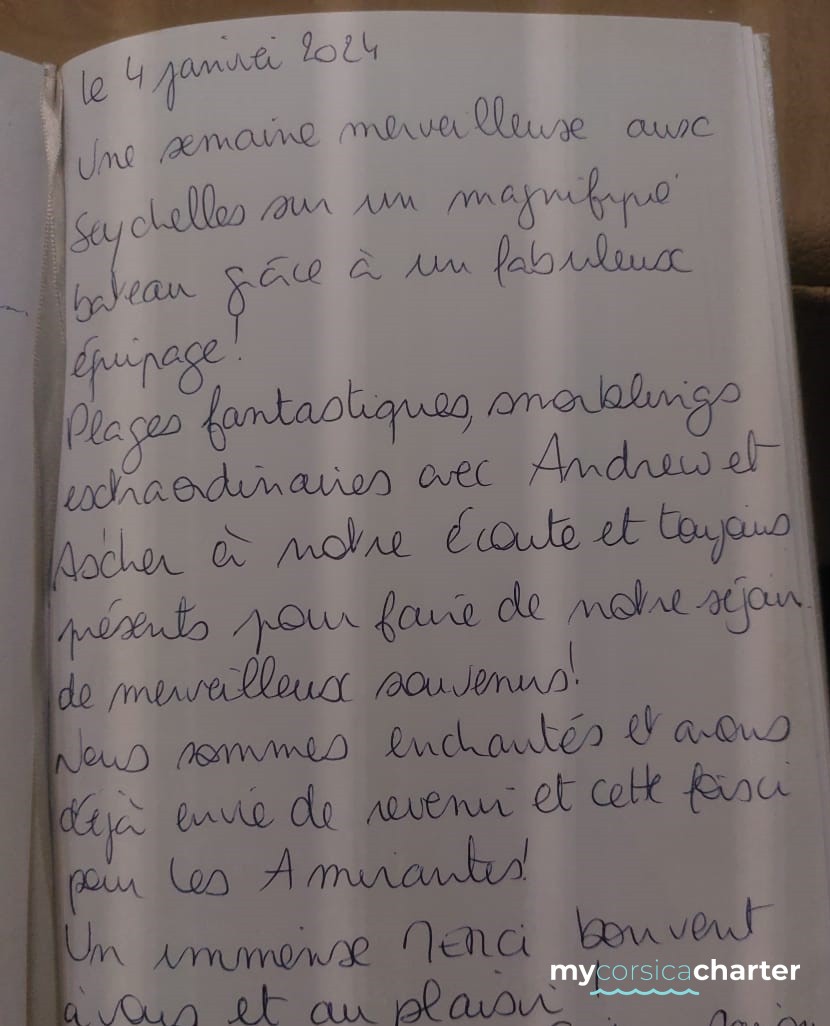 le 4 janvier 2024
Une semaine merveilleuse aux
Seychelles sur un magnifique
bateau grâce à un fabuleux
équipage!
Plages fantastiques, snorklings
extraordinaires avec Andrew et
Ascher à notre écoute et toujours
présents pour faire de notre séjour
de merveilleux souvenirs!
Nous sommes enchantés et avons
déjà envie de revenir et cette fois ci
pour les Amirantes!
Un immense Merci bon vent
à vous et au plaisir!
mycorsicacharter